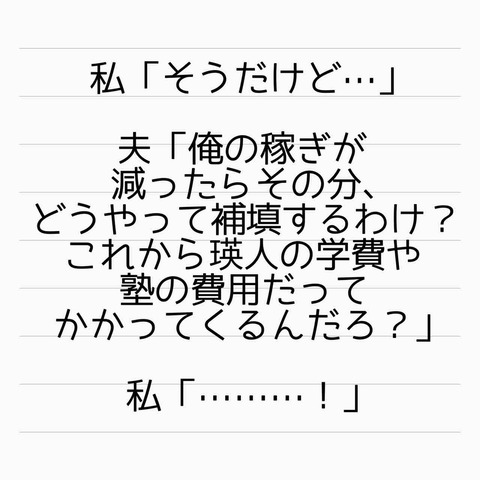 私「そうだけど…」
夫「俺の稼ぎが
減ったらその分、
どうやって補填するわけ？
これから瑛人の学費や
塾の費用だって
かかってくるんだろ？」
私「………！」